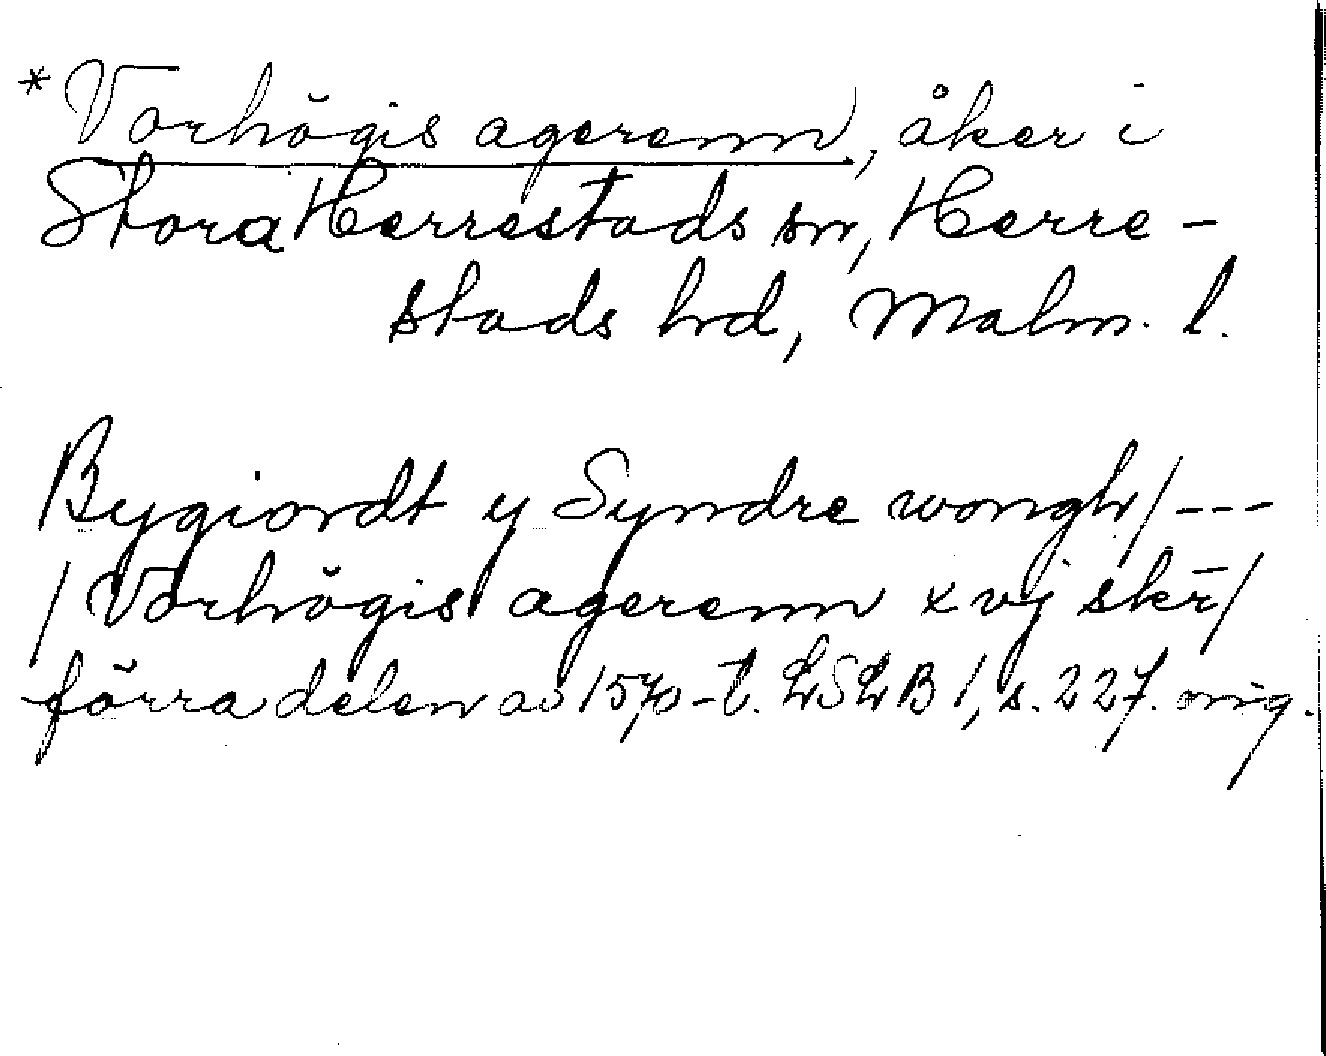 *Vorhögis agerenn, åker i
Stora Herrestads sn, Herre-
stads hd, Malm. l.
Bygiordt y Syndre wongh/---
/Vorhögis agerenn xvj skr̄/
förra delen av 1570-t. LSLB 1, s. 227. orig.